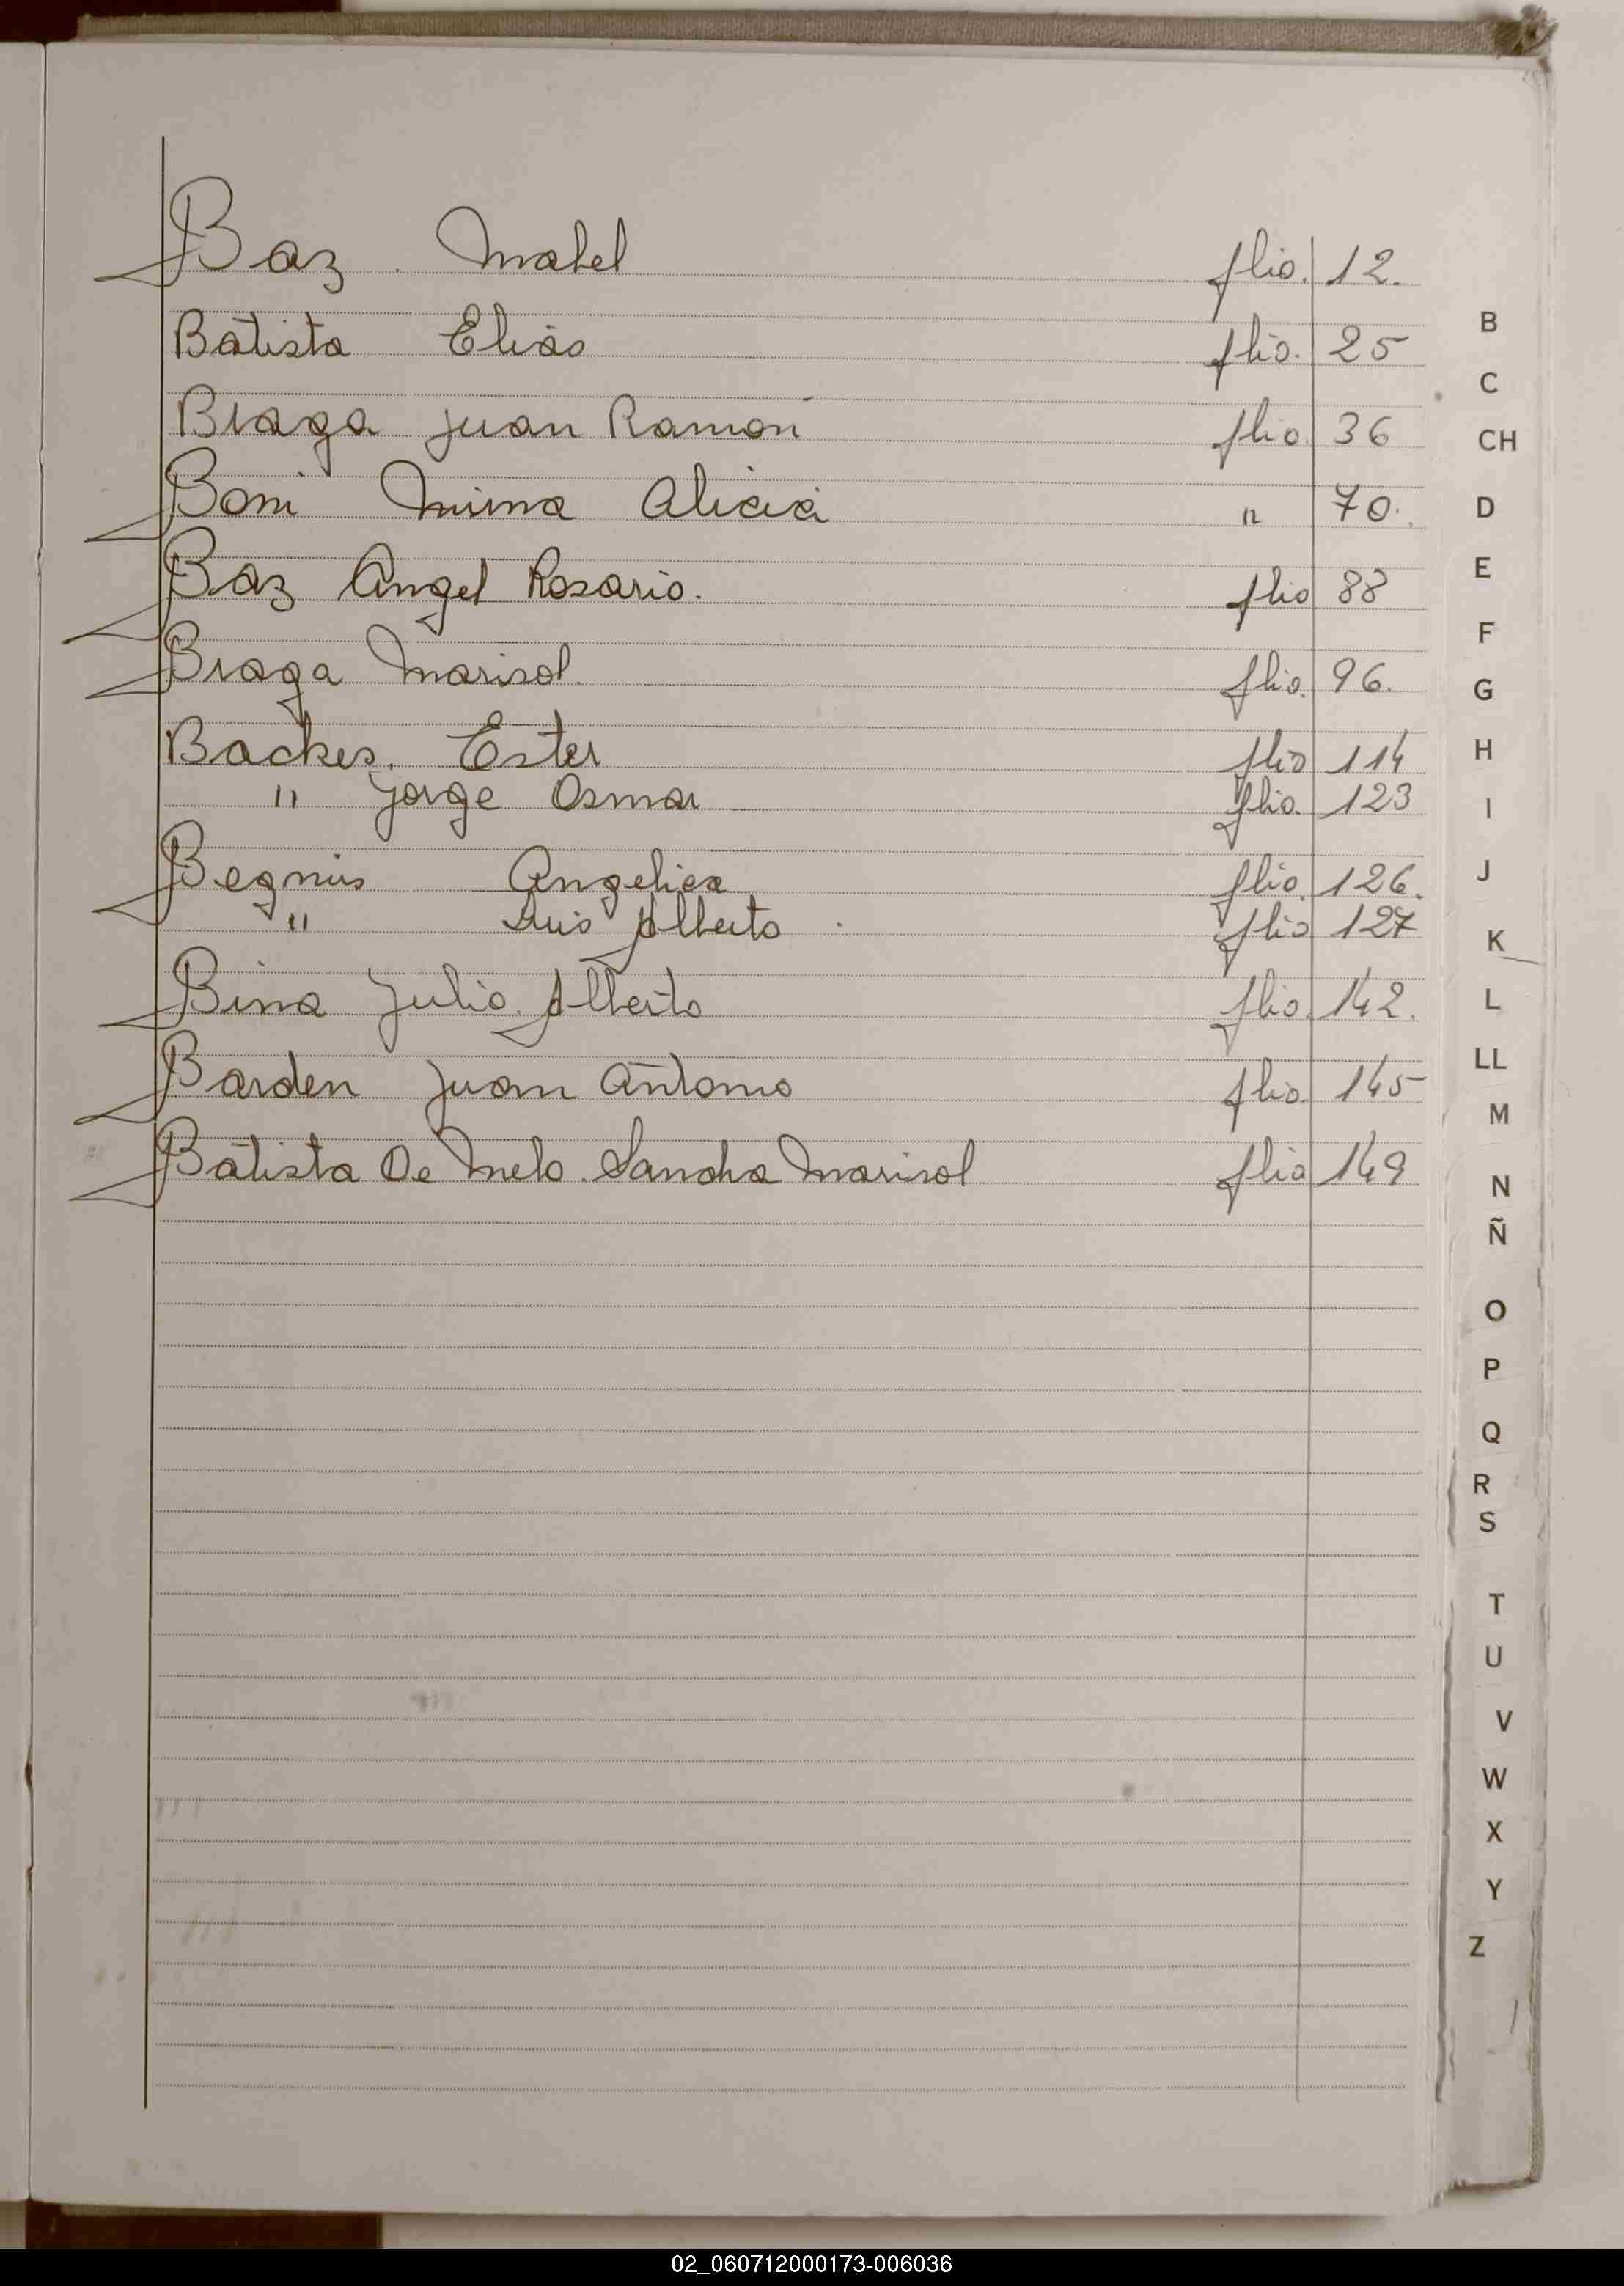 Baz. Mabel flio. 12.
Batista Elias flio. 25
Braga Juan Ramón flio. 36
Boni Mirna Alicia " 70.
Baz Angel Rosario. flio 88
Braga Marisol. flio. 96.
Backes. Ester flio 114
" Jorge Osmar flio. 123
Begnis Angelica flio. 126.
" Luis Alberto flio 127
Bina Julio Alberto flio. 142.
Barden Juan Antonio flio. 145
Batista De Melo. Sandra Marisol flio 149
B
C
CH
D
E
F
G
H
I
J
K
L
LL
M
N
Ñ
O
P
Q
R
S
T
U
V
W
X
Y
Z
02_060712000173-006036